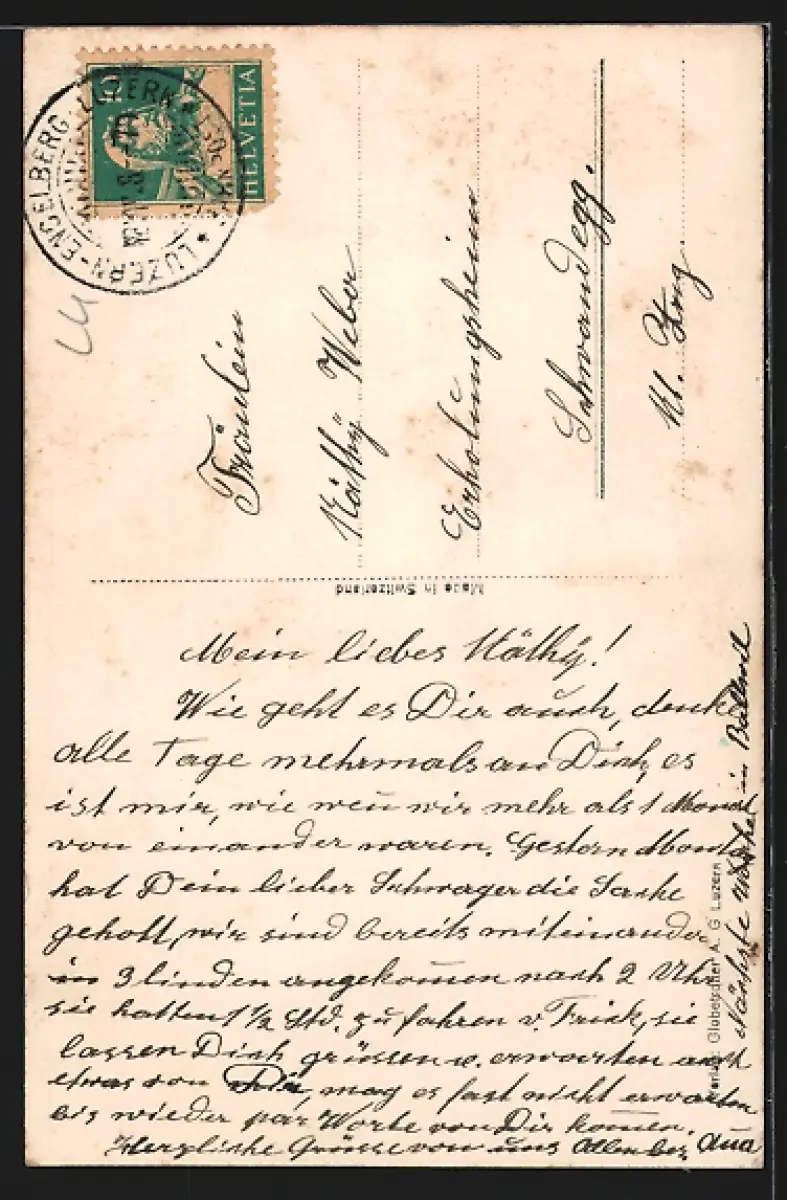 HELVETIA
LUZERN-ENGELBERG
LUZERN
Fräulein
Käthy Weber
Erholungsheim
Schwandegg.
Kt. Zug
Made in Switzerland
Mein liebes Käthy!
Wie geht es Dir auch, denke
alle Tage mehrmals an Dich, es
ist mir, wie wen̄ wir mehr als 1 Monat
von einander waren. Gestern Montag
hat Dein lieber Schwager die Sache
geholt, wir sind bereits miteinander
in 3 linden angekom̄en nach 2 Uhr
sie hatten 1 1/2 Std. zu fahren v. Frick, sie
lassen Dich grüssen u. erwarten auch
etwas von Dir, mag es fast nicht erwarten
bis wieder par Worte von Dir kom̄en.
Herzliche Grüsse von uns Allen bes.
Nächste Woche in
Verlag Globetrotter A. G. Luzern